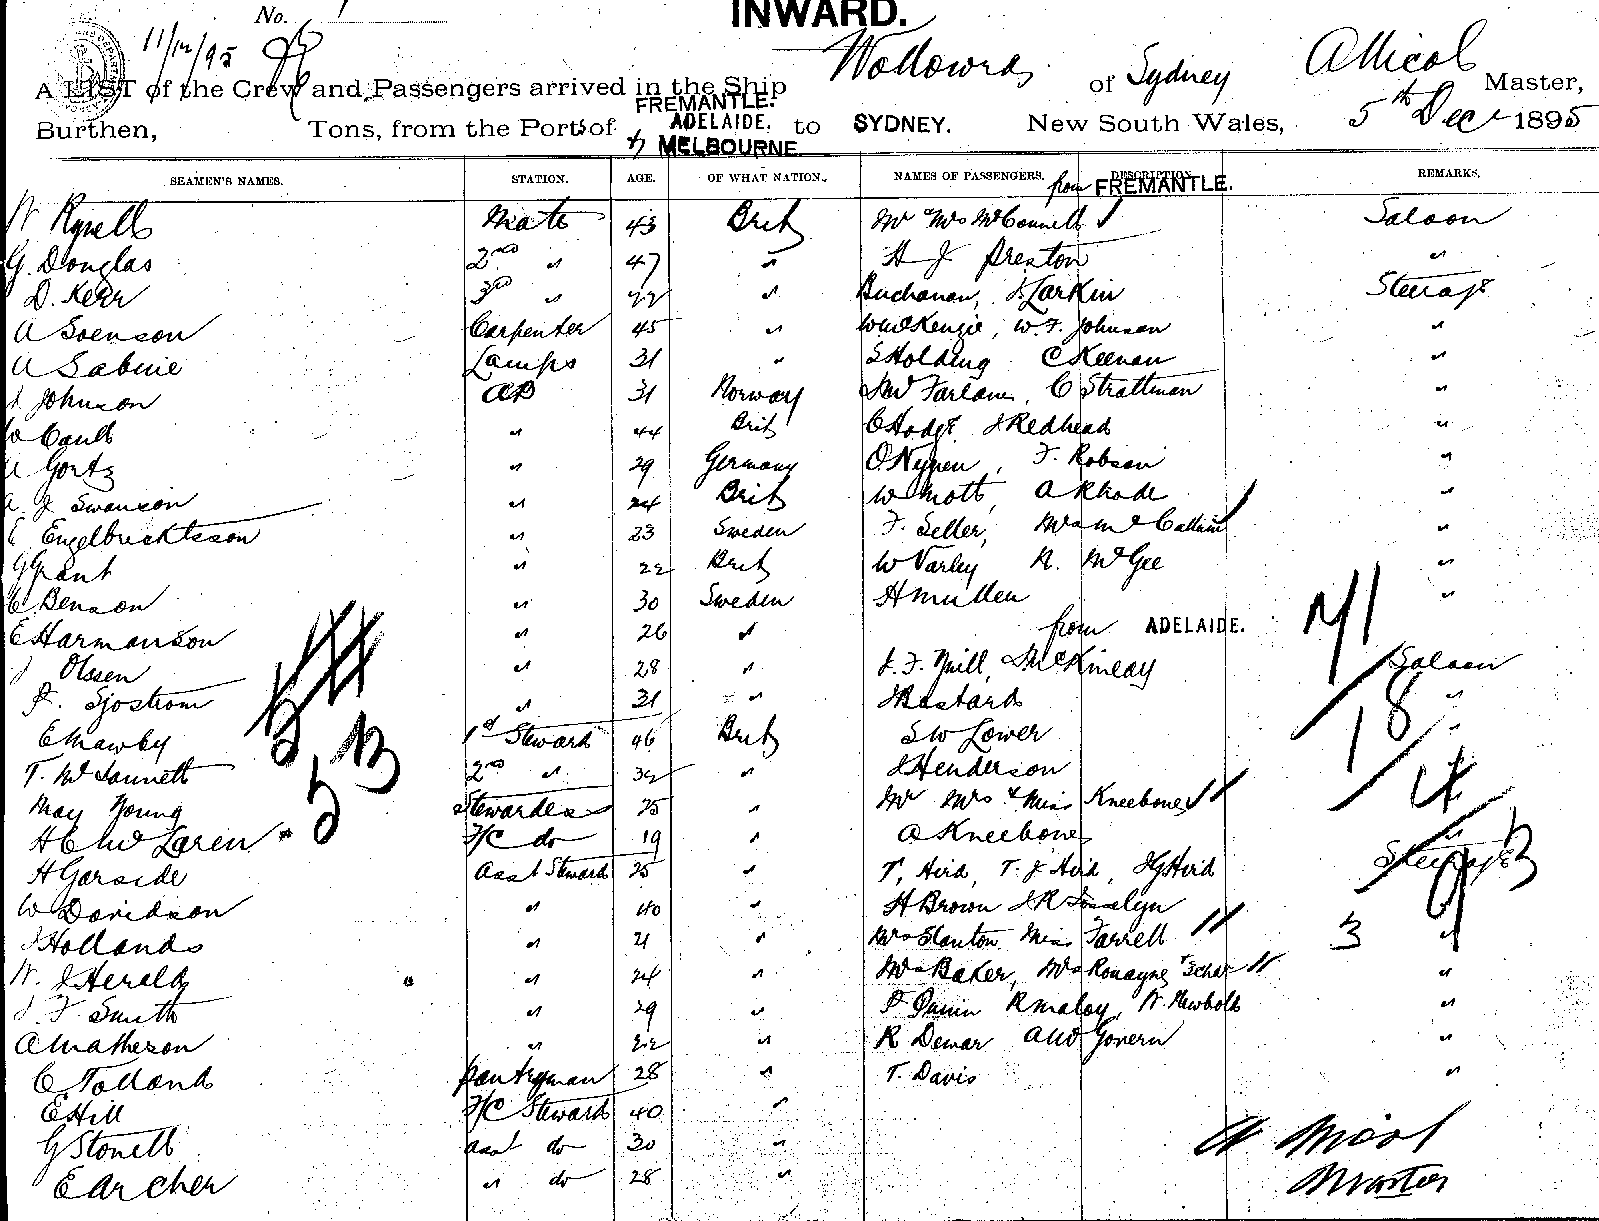 INWARD.
No. 1
11/12/95
A LIST of the Crew and Passengers arrived in the Ship Wollowra of Sydney A Nicol Master,
Burthen, Tons, from the Ports of FREMANTLE. ADELAIDE. & MELBOURNE to SYDNEY. New South Wales, 5th Dec 1895
SEAMEN'S NAMES. STATION. AGE. OF WHAT NATION. NAMES OF PASSENGERS. DESCRIPTION. REMARKS.
from FREMANTLE.
Mate 43 Brit Mr & Mrs McConnell Saloon
G. Douglas 2nd " 47 " H J Preston "
D. Kerr 3rd " 22 " Buchanan, J. Larkin Steerage
A Svenson Carpenter 45 " W McKenzie, W. F. Johnson "
A Sabine Lamps 31 " S Holding C Keenan "
J Johnson AB 31 Norway J McFarlane, C Strattman "
Cault " 44 Brit C Hodge J Redhead "
A Gortz " 29 Germany O Nypen, F. Robson "
A. J Swanson " 24 Brit W Mott, A Rhode "
E Engelbrecktsson " 23 Sweden F. Seller, Mrs McCallum "
G Grant " 22 Brit W Varley R. McGee "
C Benson " 30 Sweden H Mullen "
E Harmanson " 26 " from ADELAIDE.
J Olssen " 28 " J. F. Neill, J McKinlay Saloon
F. Sjostrom " 31 " J Bastard "
E Mawby 1st Steward 46 Brit S W Lower "
2nd " 32 " J Henderson
May Young Stewardess 25 " Mr Mrs & Miss Kneebone
H E McLaren F/C do 19 " A Kneebone "
H Garside Asst Steward 25 " T. Hird, T. J Hird, J G Hird Steerage
W Davidson " 40 " H Brown J R Josselyn
J Hollands " 21 " Mrs Stanton, Miss Farrell "
W. J Herald " 24 " Mrs Baker, Mrs Ronayne & 3 chdn "
J. F. Smith " 29 " P Dunn R Maloy, W. Newbold "
A Matheson " 22 " R Dewar A McGovern "
C Tolland Pantryman 28 " T. Davis "
E Hill F/C Steward 40 "
G Stonell Asst do 30 "
E Archer " do 28 "
A Nicol
Master